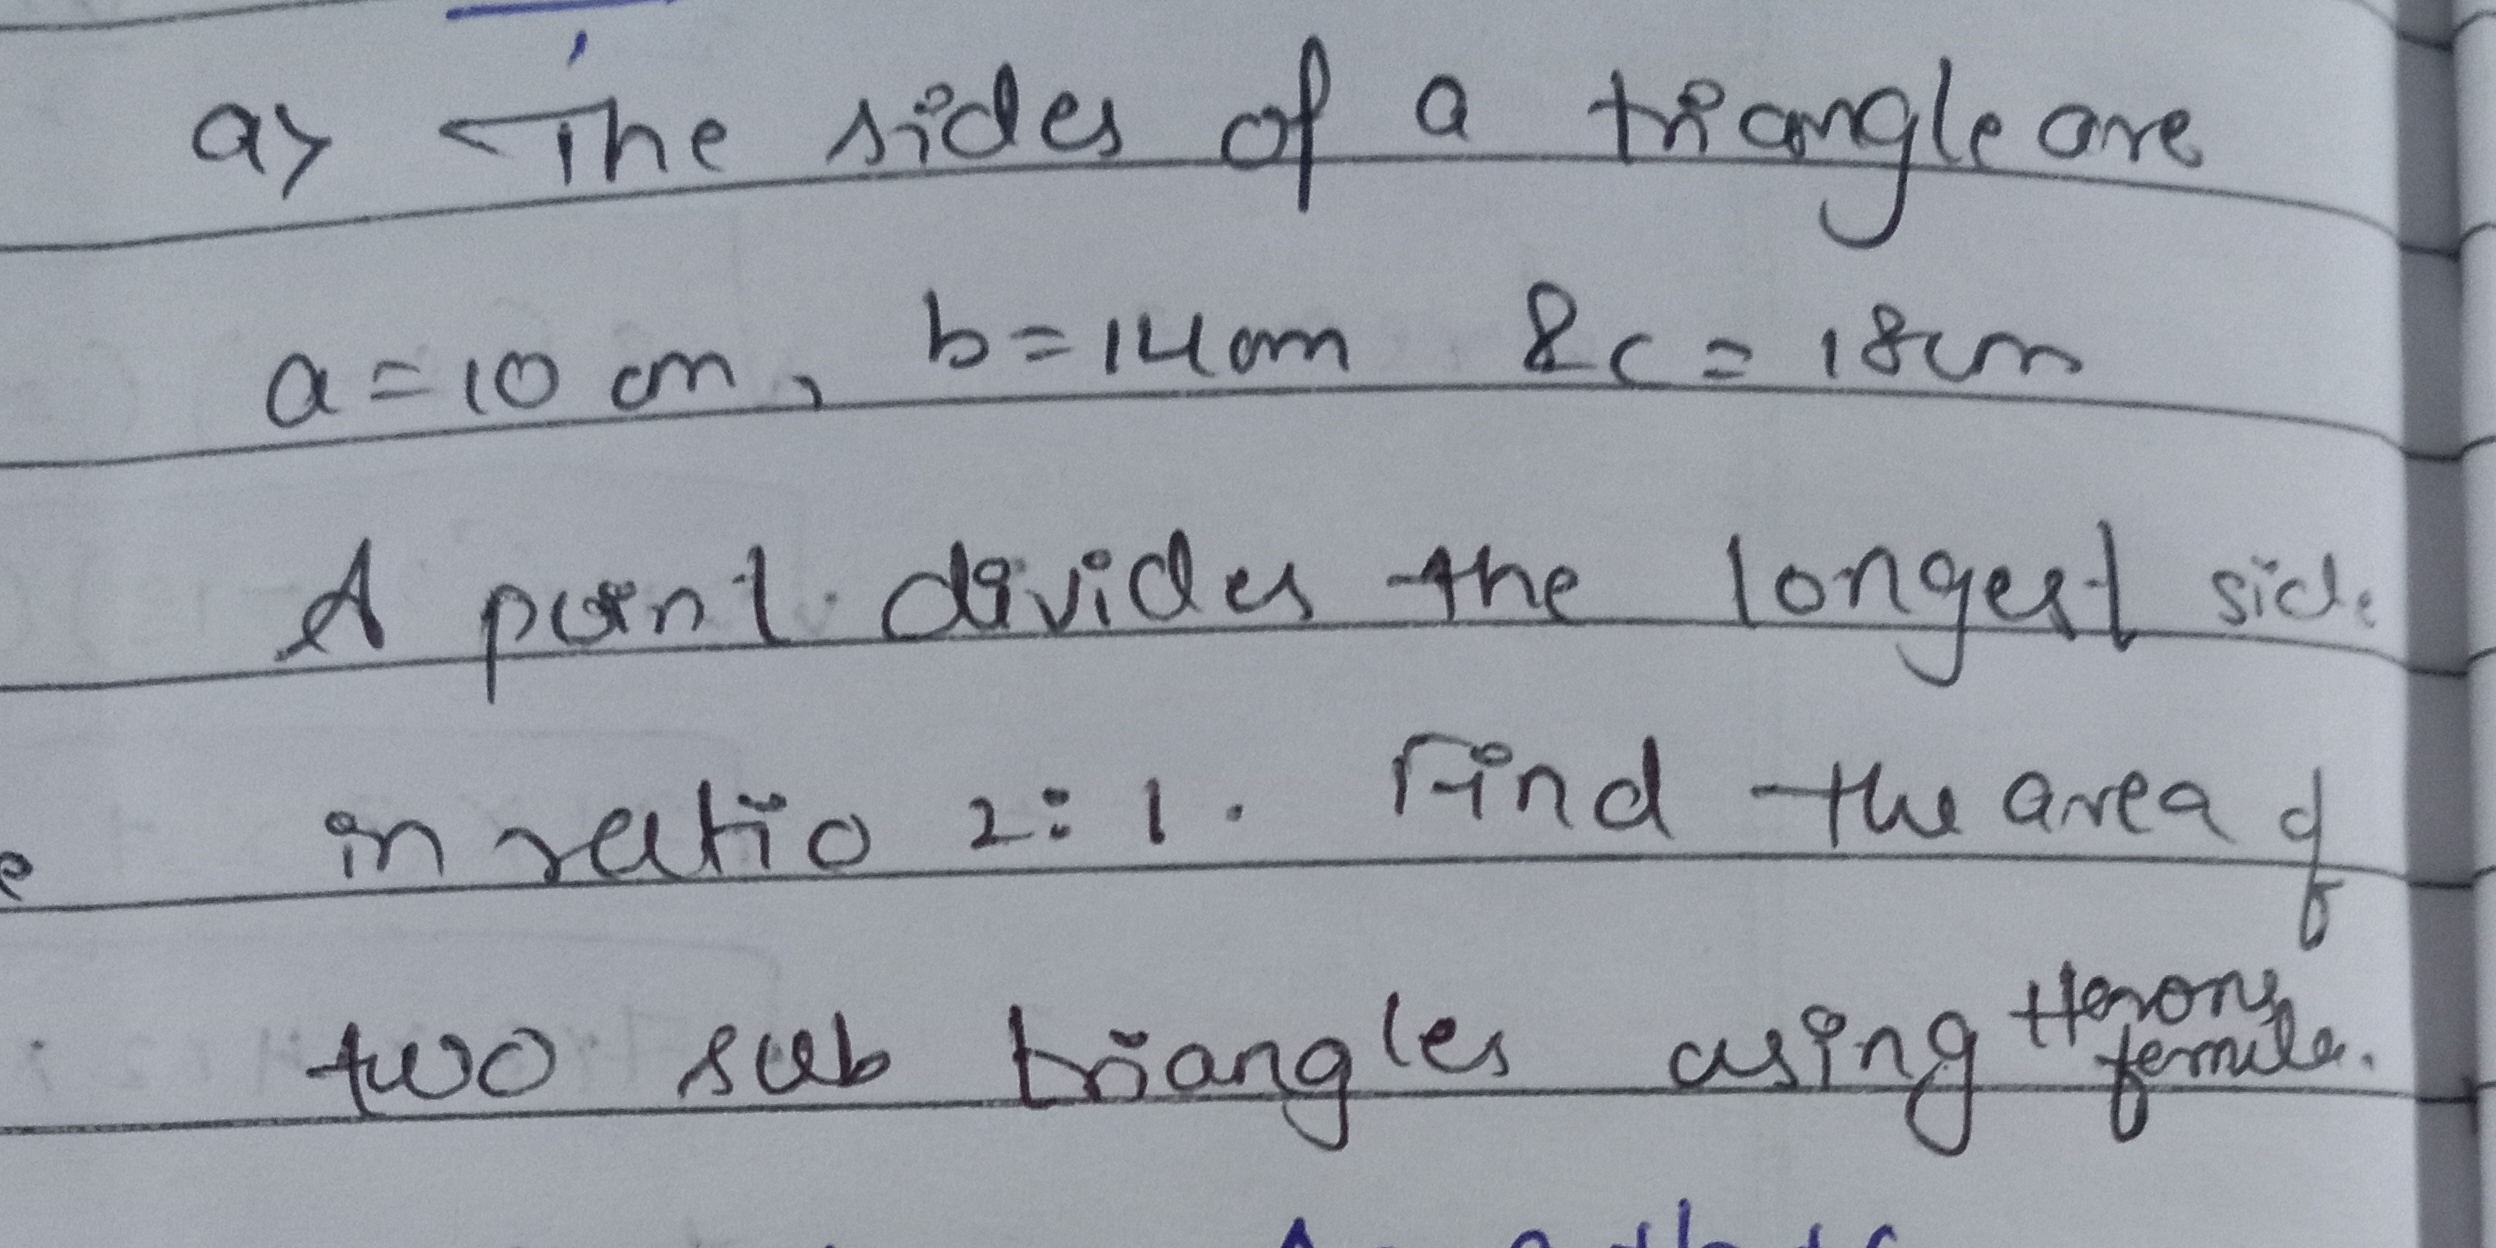 a> The sides of a triangle are
a = 10 cm, b = 14 cm & c = 18 cm
A point divides the longest side
in ratio 2:1. Find the area of
two sub triangles using Herons
formula.